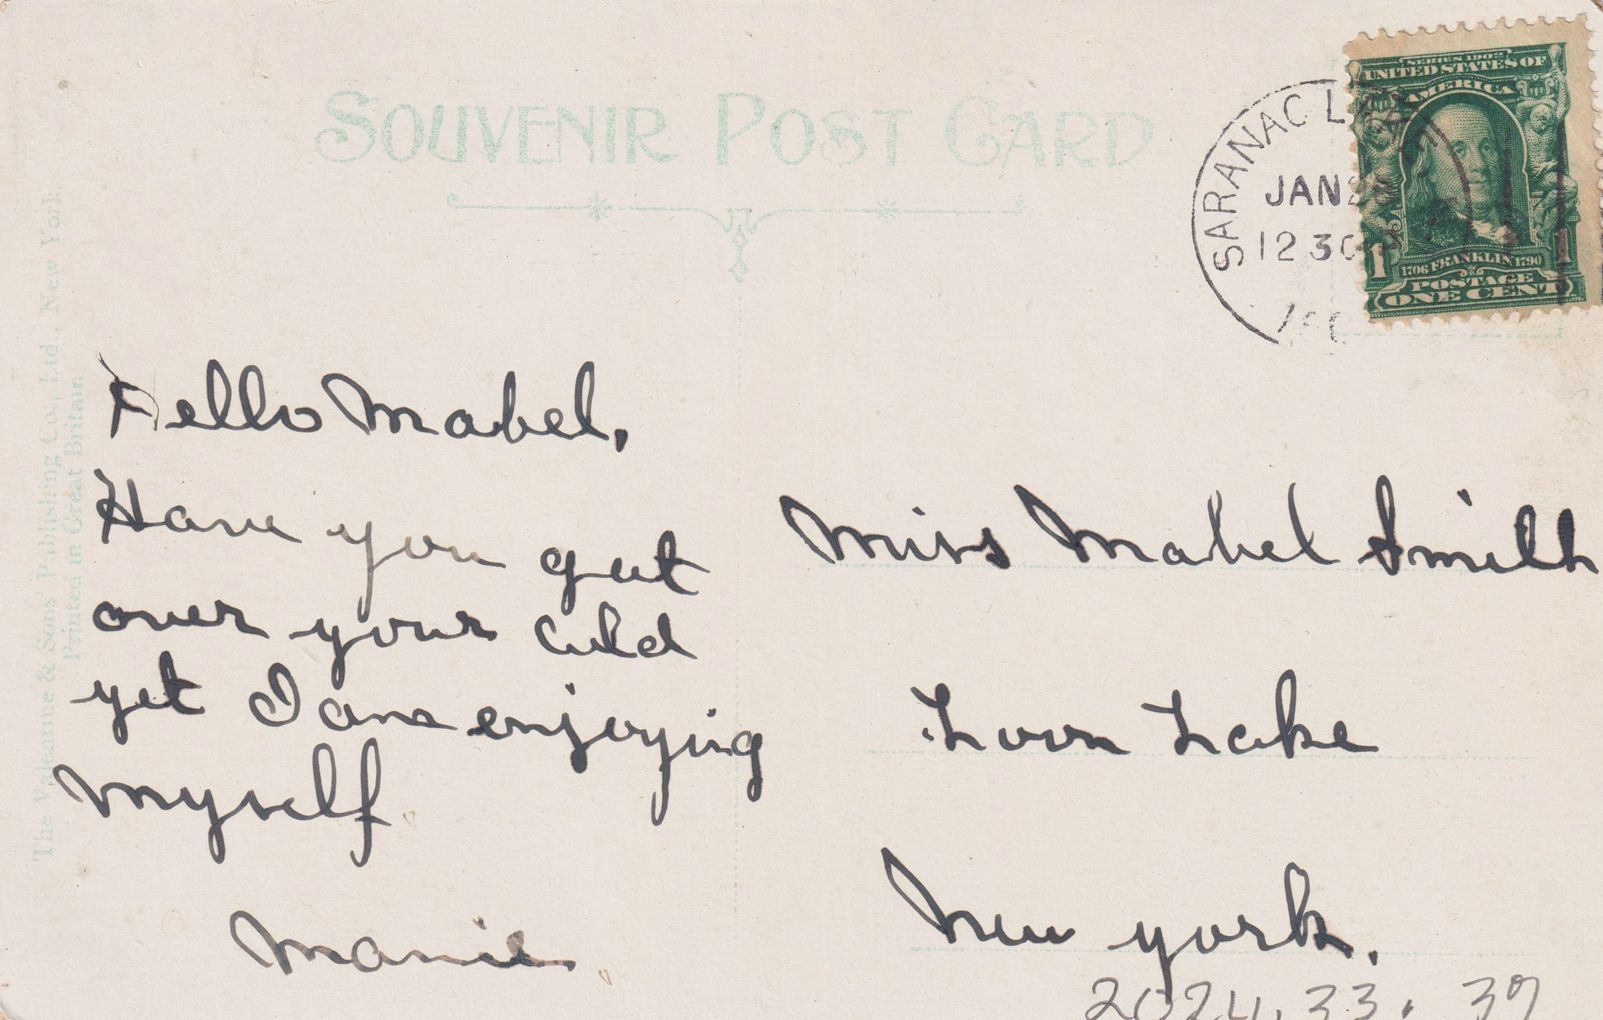 SOUVENIR POST CARD
SARANAC LAKE
JAN
12 30
SERIES 1902
UNITED STATES OF
AMERICA
1 1
1706 FRANKLIN 1790
POSTAGE
ONE CENT
The Valentine & Sons' Publishing Co., Ltd., New York
Printed in Great Britain
Hello Mabel,
Have you got
over your cold
yet I am enjoying
myself
Mamie
Miss Mabel Smith
Loon Lake
New York.
2024.33.39